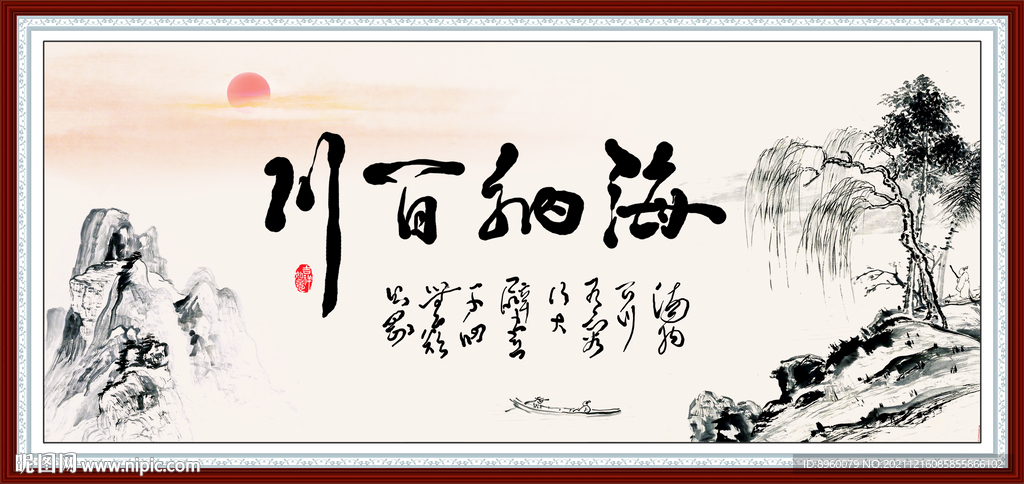 海纳百川
海纳
百川
有容
乃大
壁立
千仞
無欲
则刚
昵图网 www.nipic.com
ID:8960079 NO:20211216085855866102